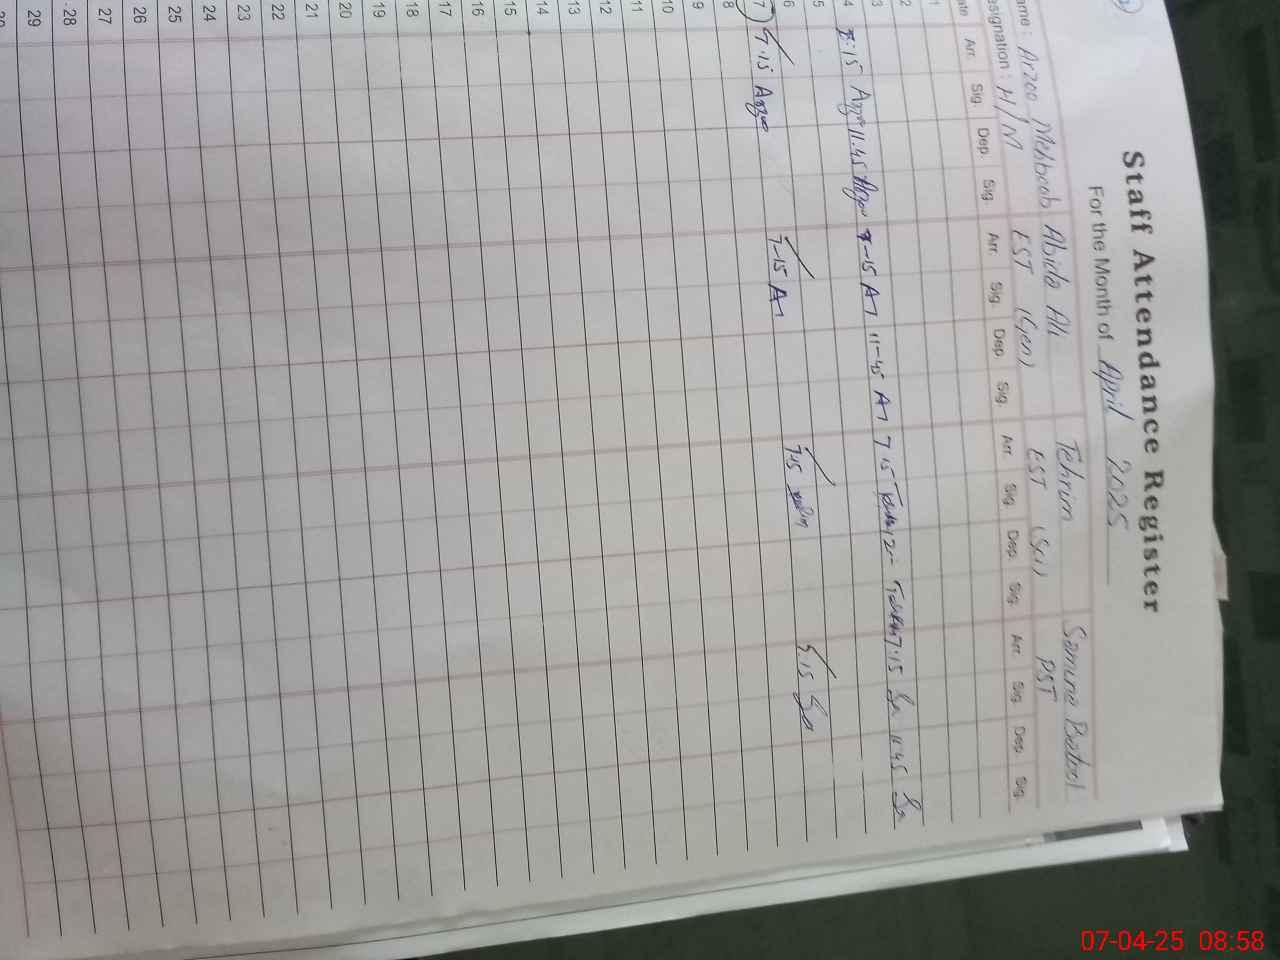 Staff Attendance Register
For the Month of April 2025
ame : Arzoo Mehboob Abida Ali Tehrim Samina Batool
esignation : H/M EST (Gen) EST (Sci) PST
ate Arr. Sig. Dep. Sig. Arr. Sig. Dep. Sig. Arr. Sig. Dep. Sig. Arr. Sig. Dep. Sig.
1
2
3
4 7:15 Arzoo 11.45 Arzoo 7-15 A 11-45 A 7.15 12- 7:15 Sa 11:45 Sa
5
6
7 7.15 Arzoo 7-15 A 7.15 7.15 Sa
8
9
10
11
12
13
14
15
16
17
18
19
20
21
22
23
24
25
26
27
28
29
07-04-25 08:58